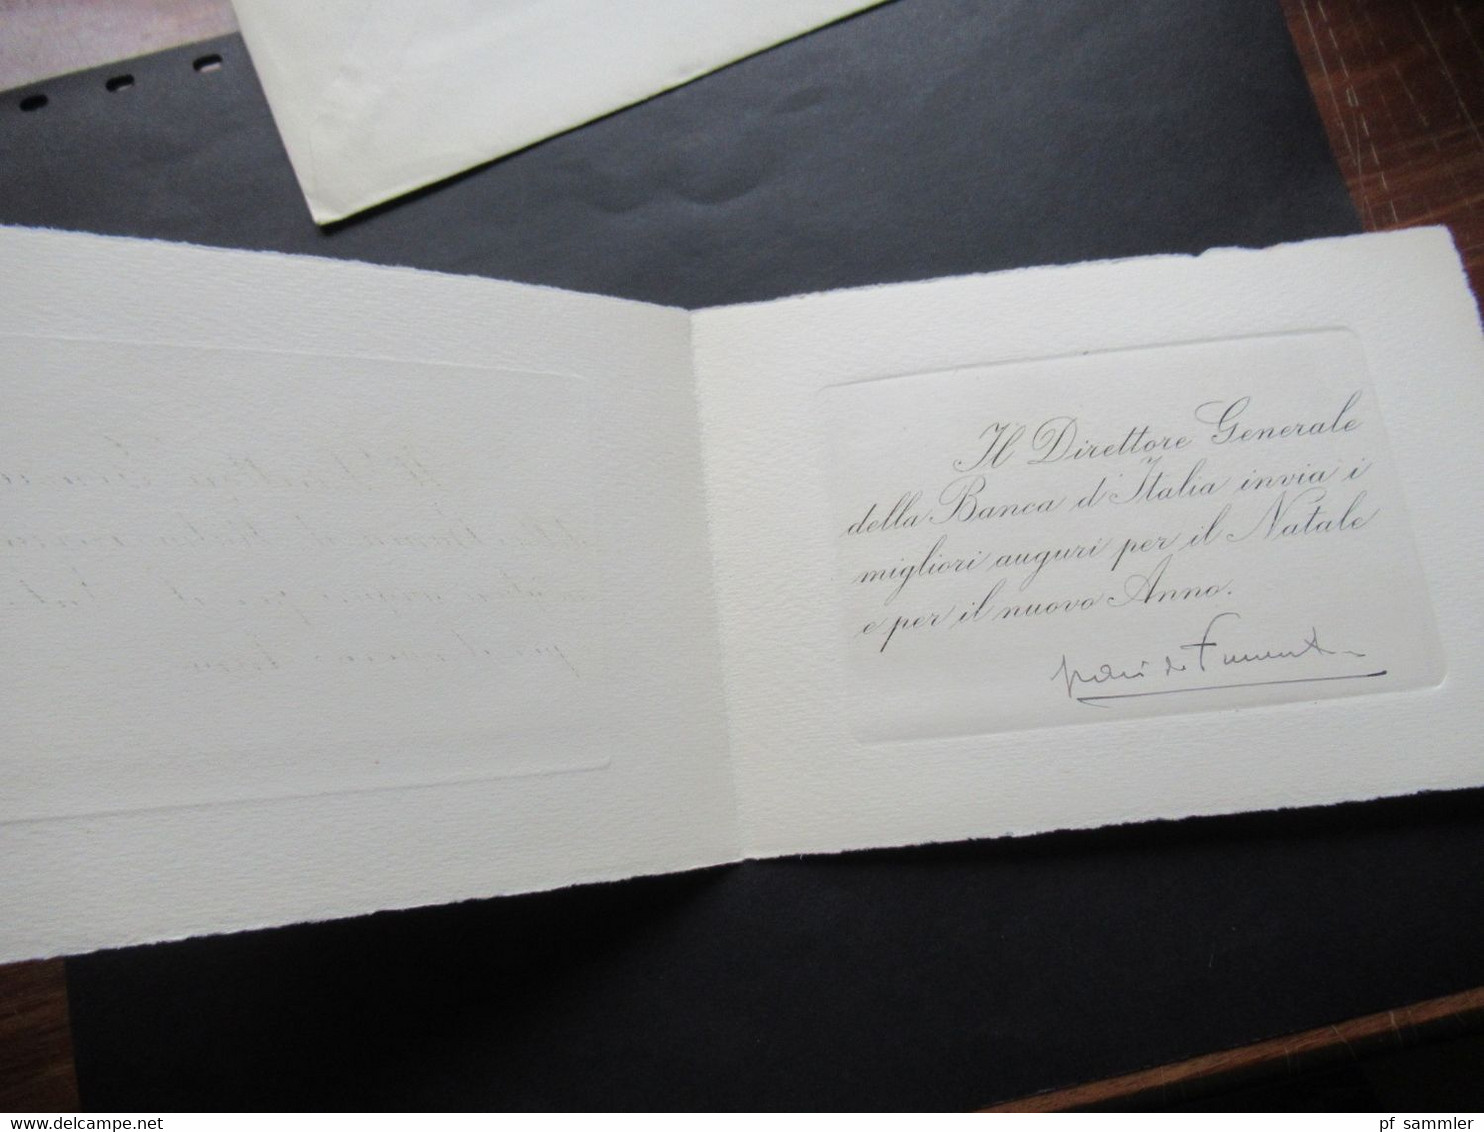 Il Direttore Generale
della Banca d'Italia invia i
migliori auguri per il Natale
e per il nuovo Anno.
www.delcampe.net
pf_sammler